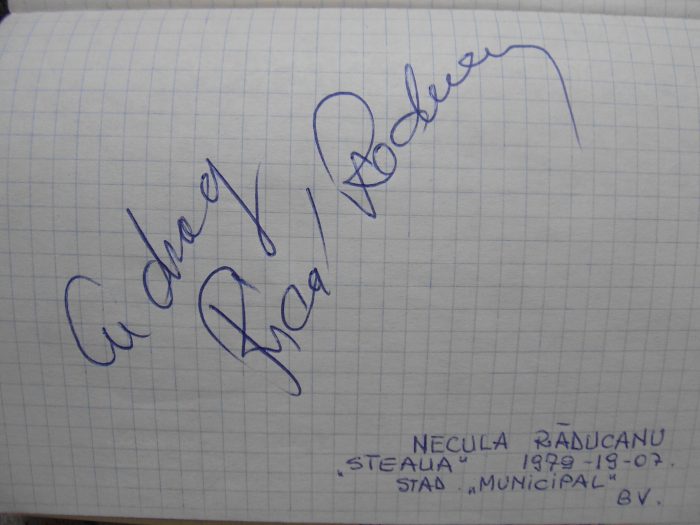 Cu drag
Rică Răducanu
NECULA RĂDUCANU
„STEAUA" 1979-19-07.
STAD „MUNICIPAL"
BV.